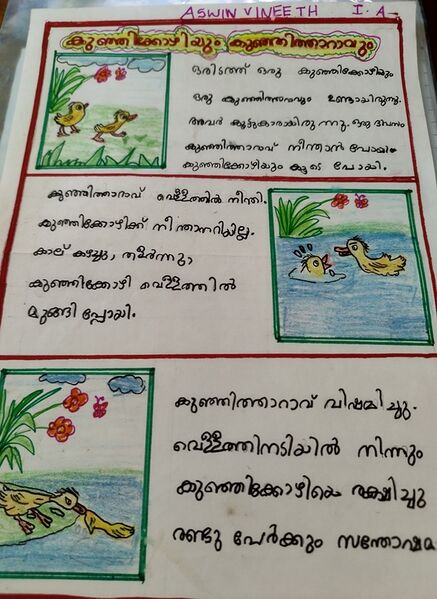 ASWIN VINEETH I.A
കുഞ്ഞിക്കോഴിയും കുഞ്ഞിത്താറാവും
ഒരിടത്ത് ഒരു കുഞ്ഞിക്കോഴിയും
ഒരു കുഞ്ഞിത്താറാവും ഉണ്ടായിരുന്നു.
അവർ കൂട്ടുകാരായിരുന്നു. ഒരു ദിവസം
കുഞ്ഞിത്താറാവ് നീന്താൻ പോയി.
കുഞ്ഞിക്കോഴിയും കൂടെ പോയി.
കുഞ്ഞിത്താറാവ് വെള്ളത്തിൽ നീന്തി.
കുഞ്ഞിക്കോഴിക്ക് നീന്താനറിയില്ല.
കാല് കഴച്ചു, തളർന്നു,
കുഞ്ഞിക്കോഴി വെള്ളത്തിൽ
മുങ്ങി പ്പോയി.
കുഞ്ഞിത്താറാവ് വിഷമിച്ചു.
വെള്ളത്തിനടിയിൽ നിന്നും
കുഞ്ഞിക്കോഴിയെ രക്ഷിച്ചു
രണ്ടു പേർക്കും സന്തോഷമ